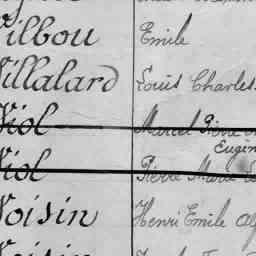 ilbou Emile
illalard Louis Charles
Viol Marcel Pierre
Eugèn
Viol Pierre Marie
Voisin Henri Emile
oisin